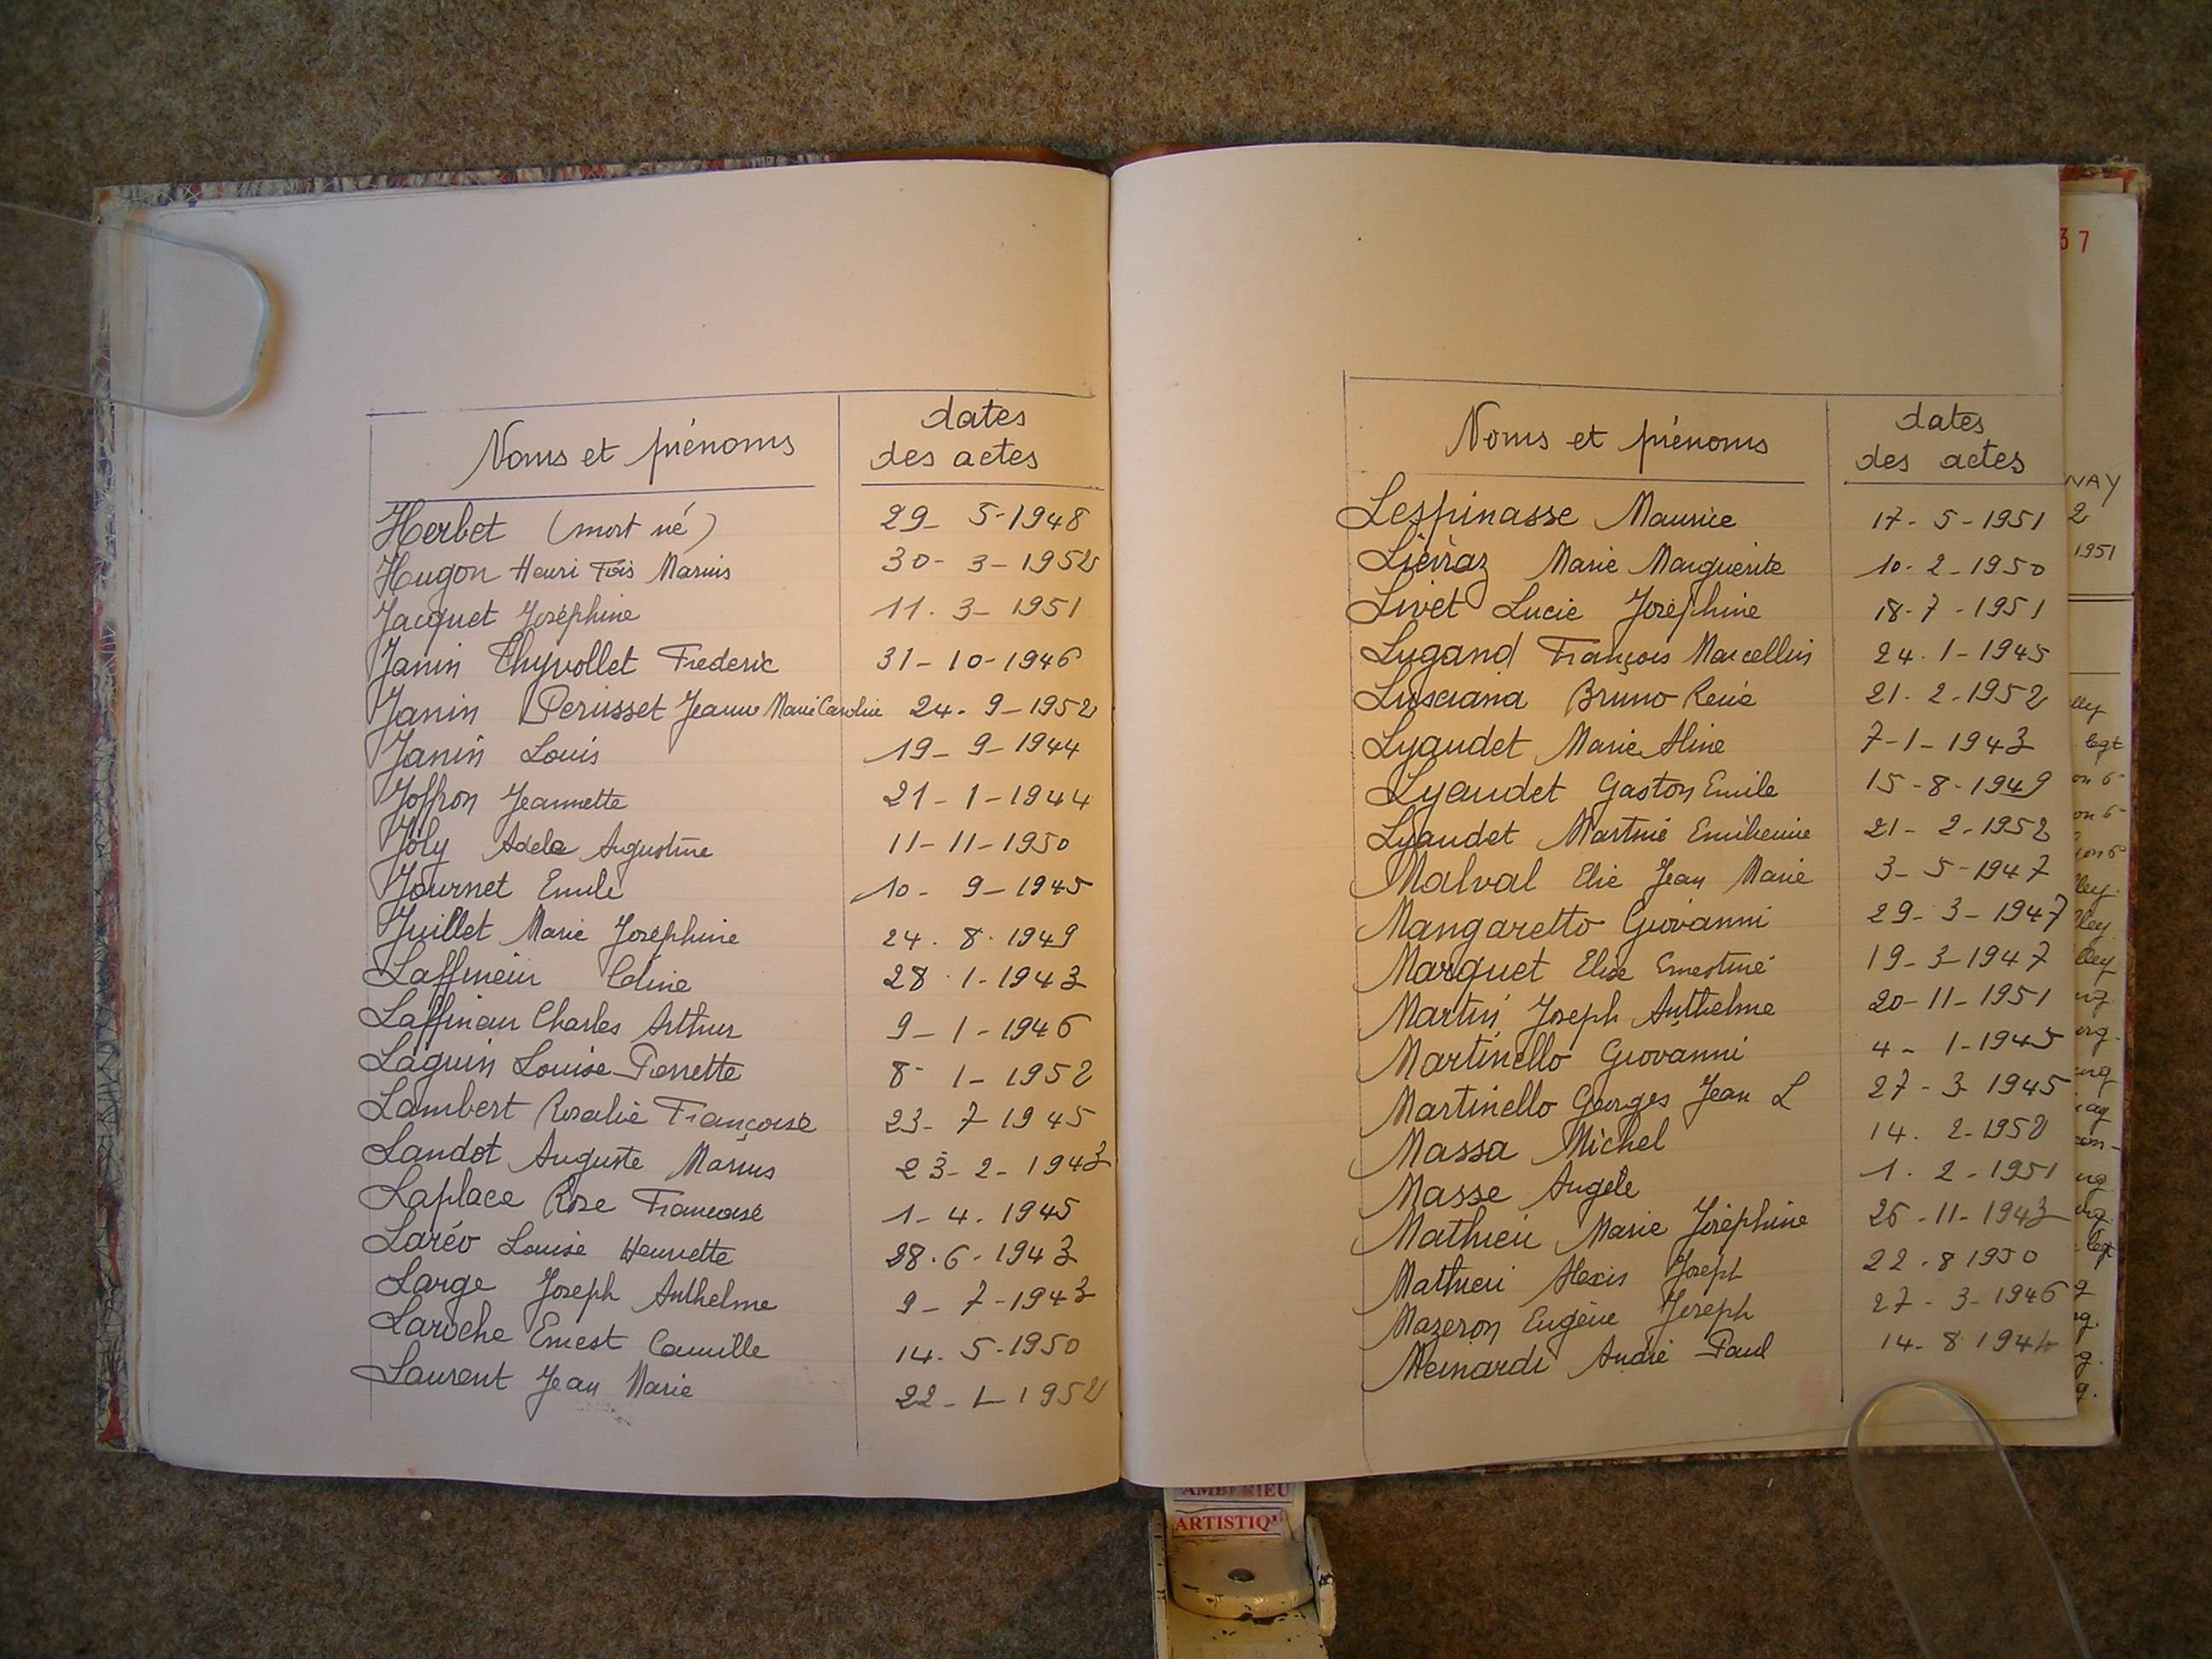 Noms et prénoms dates des actes
Herbet (mort né) 29- 5-1948
Hugon Henri Fois Marius 30- 3-1952
Jacquet Joséphine 11. 3- 1951
Janin Thyvollet Frederic 31-10-1946
Janin Perusset Jeanne Marie Caroline 24-9-1952
Janin Louis 19-9-1944
Joffron Jeannette 21-1-1944
Joly Adele Augustine 11-11-1950
Journet Emile 10- 9-1945
Juillet Marie Joséphine 24.8.1949
28.1-1943
Charles Arthur 9-1-1946
Laguin Louise Pierrette 8-1-1952
Lambert Rosalie Françoise 23-7 1945
Landot Auguste Marius 23-2-1943
Laplace Rose Francoise 1-4.1945
Laréo Louise Henriette 28.6-1943
Large Joseph Anthelme 9-7-1943
Laroche Ernest Camille 14.5-1950
Laurent Jean Marie 22-1-1952
37
Noms et prénoms dates des actes
Lespinasse Maurice 17-5-1951
Liévraz Marie Marguerite 10-2-1950
Livet Lucie Joséphine 18-7-1951
Lugand François Marcellin 24.1-1945
Bruno René 21.2.1952
Lyaudet Marie Aline 7-1-1943
Lyaudet Gaston Emile 15-8-1949
Lyaudet 21-2-1952
Malval Elie Jean Marie 3-5-1947
Mangaretto Giovanni 29-3-1947
Marquet Elise Ernestine 19-3-1947
Martin Joseph Anthelme 20-11-1951
Martinello Giovanni 4-1-1945
Martinello Georges Jean L 27-3 1945
Massa Michel 14.2-1952
Masse Angèle 1.2-1951
Mathieu Marie Joséphine 26-11-1943
Mathieu Alexis Joseph 22.8 1950
Mazeron Eugène Joseph 27-3-1946
Meinardi André Paul 14-8 1944
NAY
2
1951
AMBERIEU
ARTISTIQ